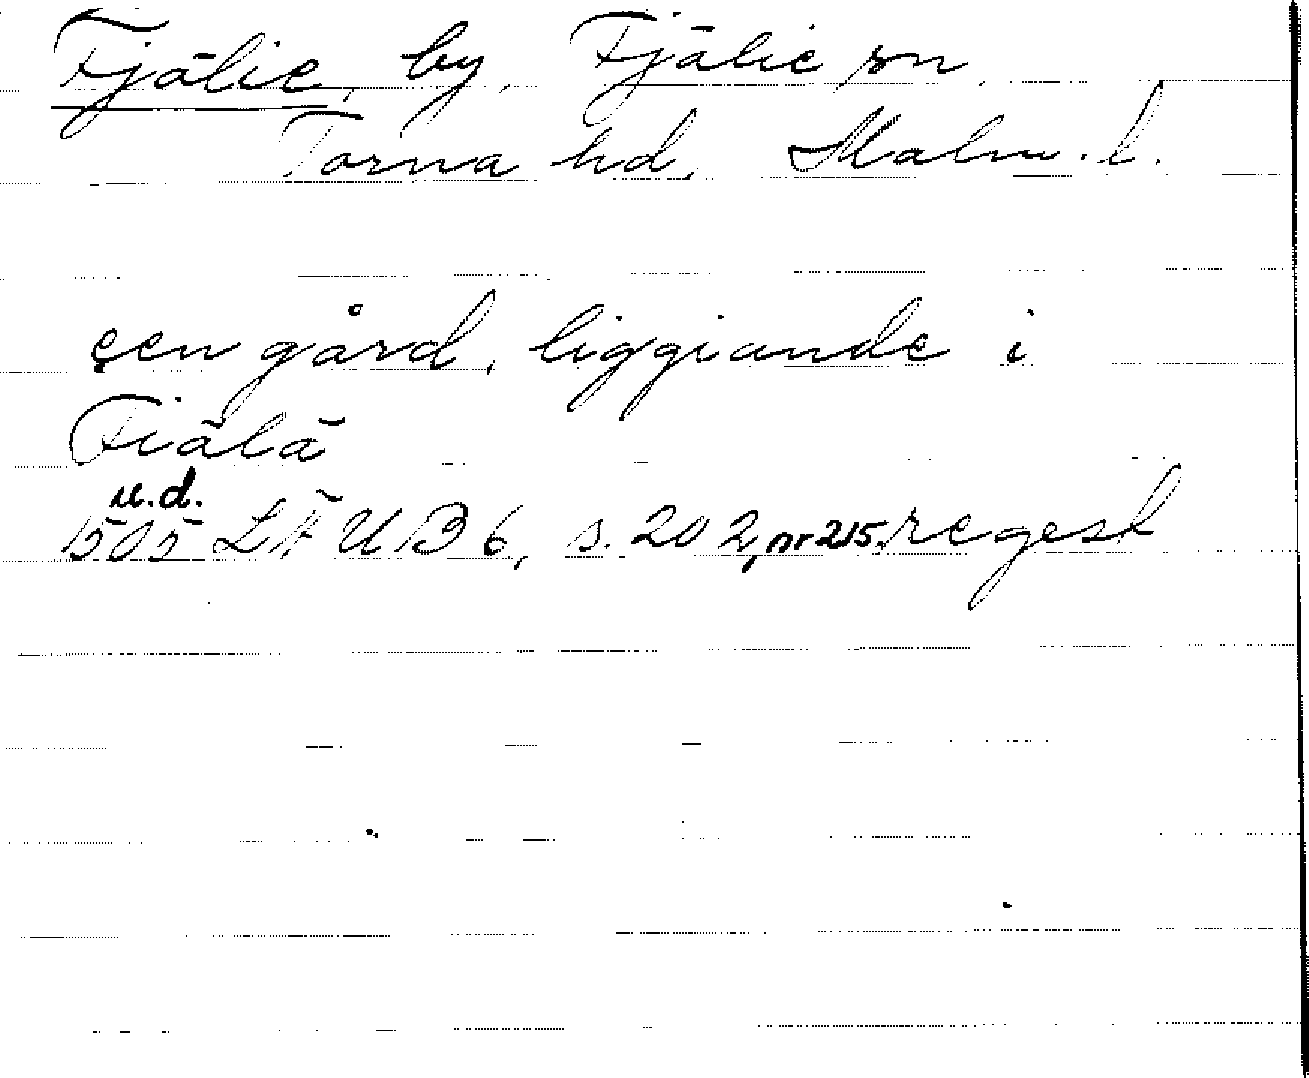 Fjälie, by, Fjälie sn,
Torna hd, Malm. l.
een gård, liggiande i
Fiälä
u.d.
1505 LÄUB 6, s. 202, nr 215. regest